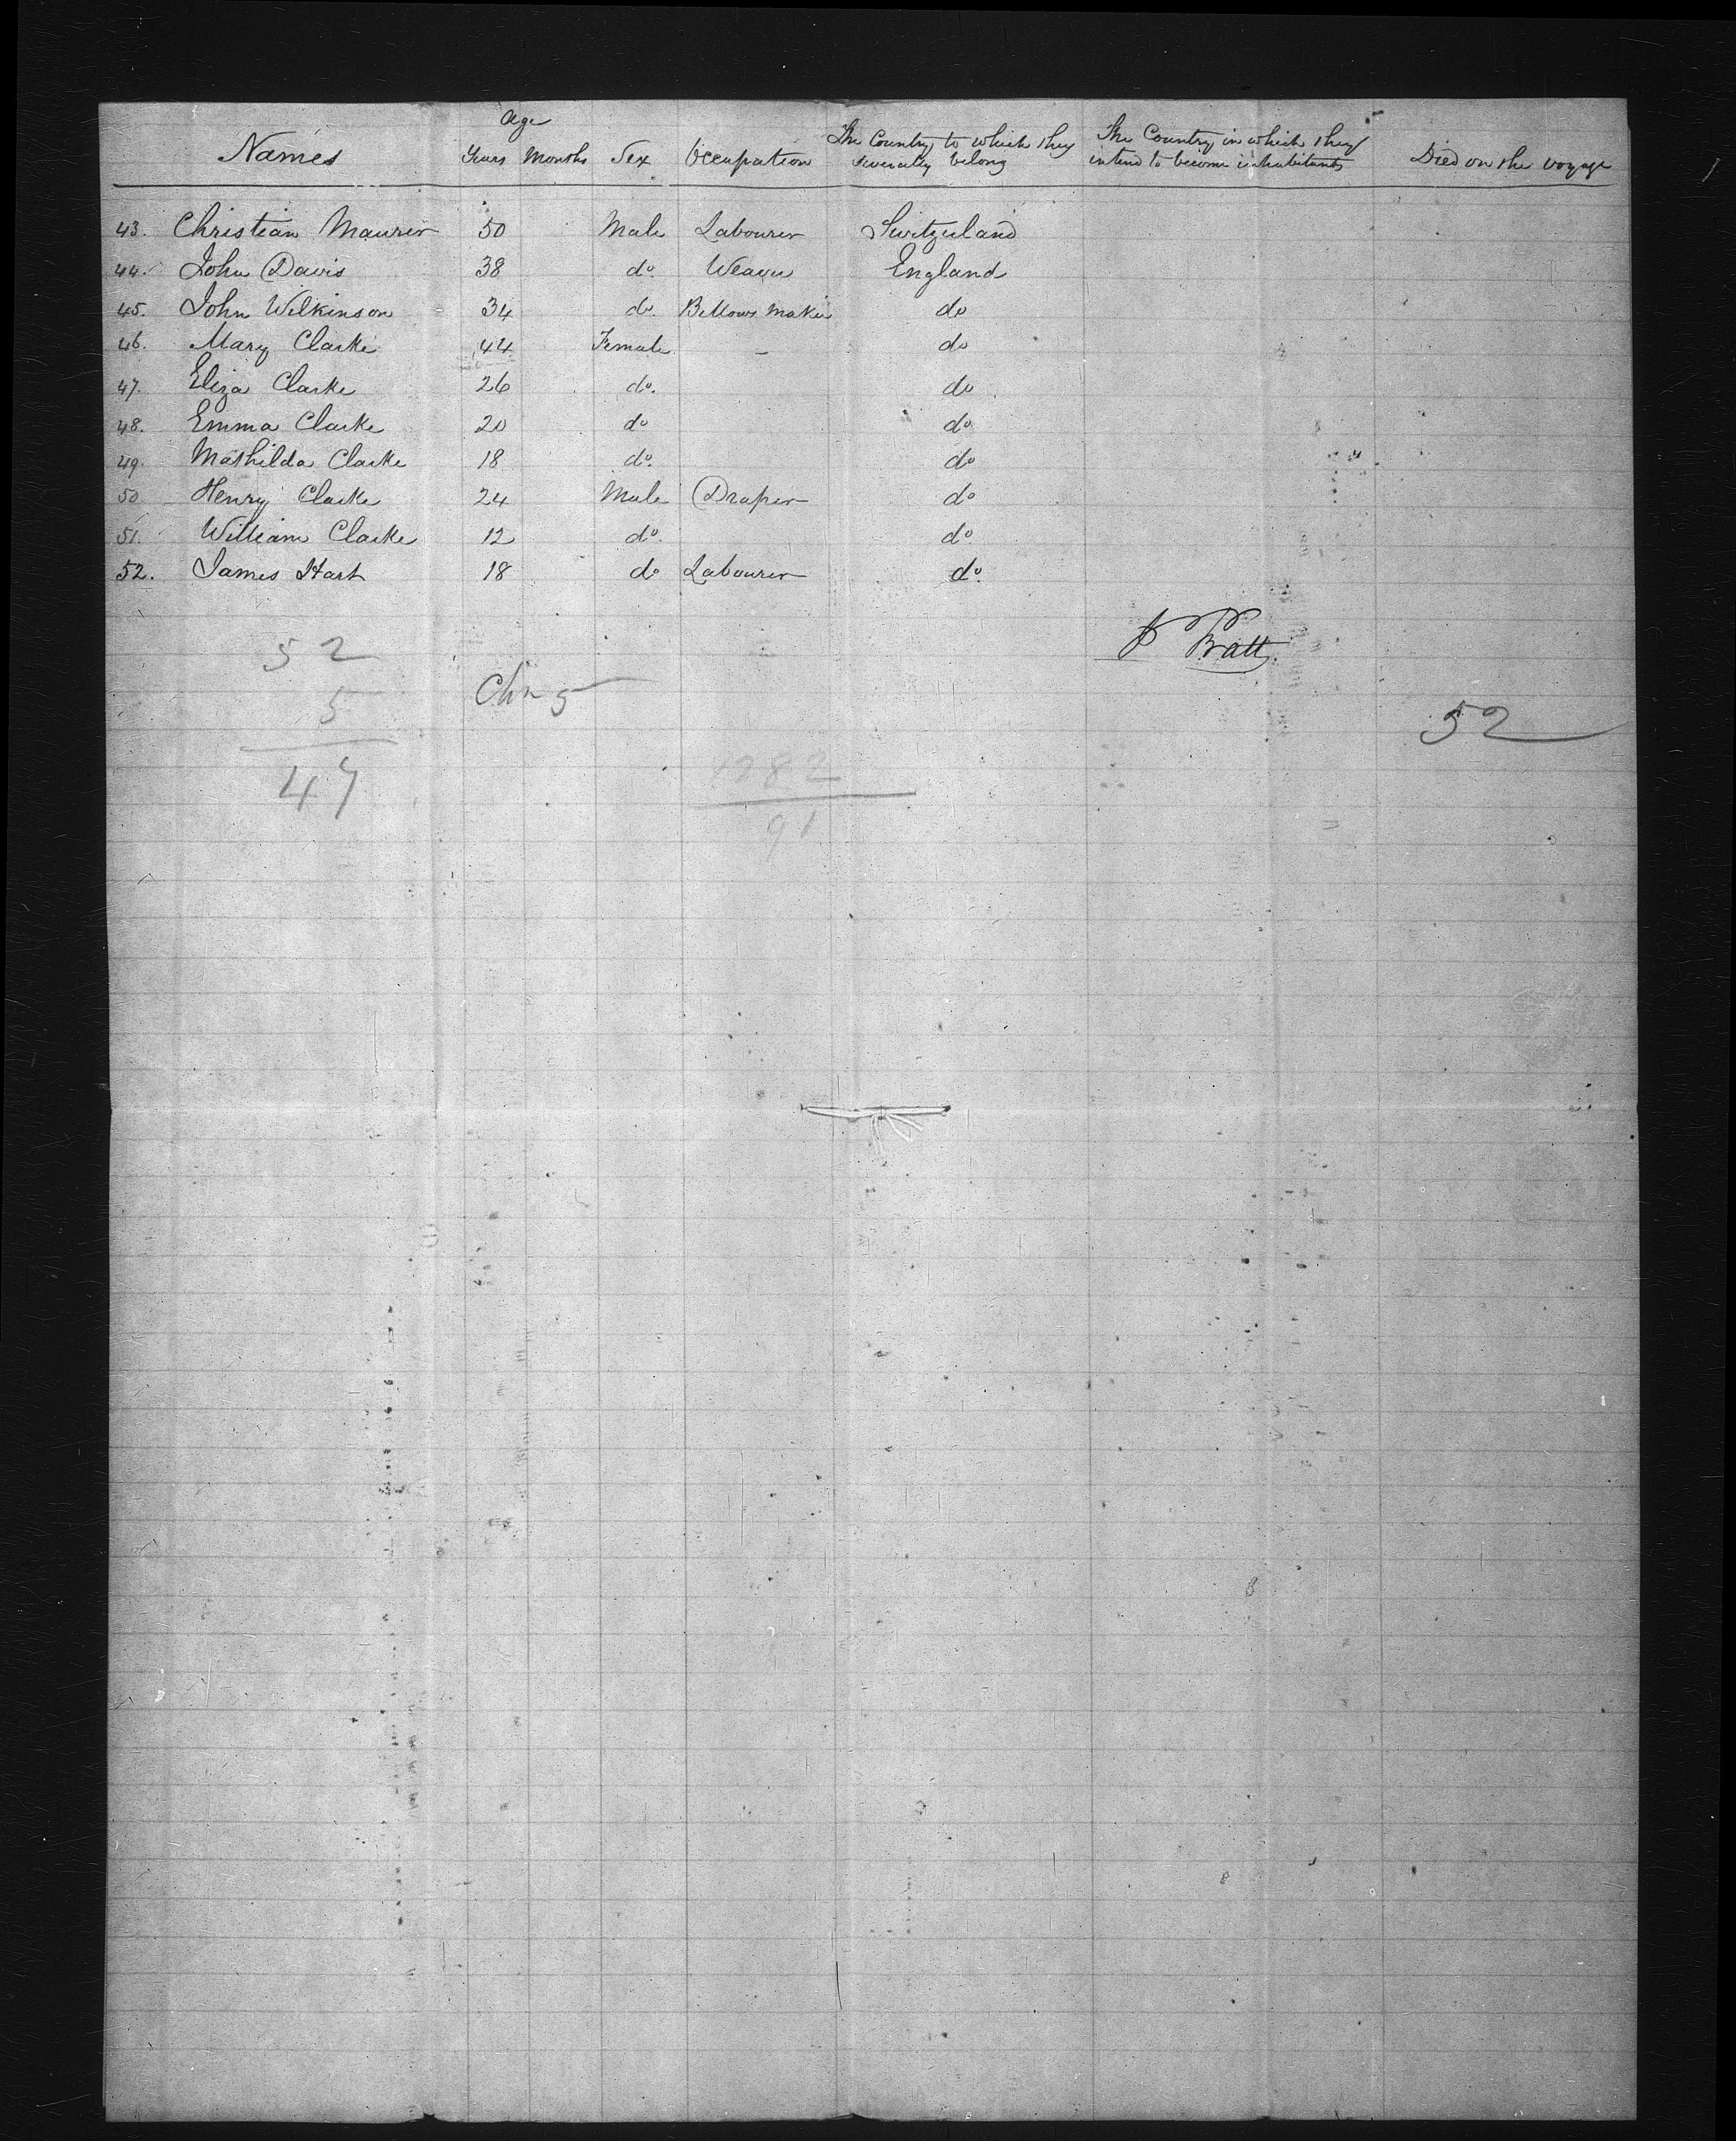 Age
Names Years Months Sex Occupation The Country to which they severally belong The Country in which they intend to become inhabitants Died on the voyage
43. Christian Maurer 50 Male Labourer Switzerland
44. John Davis 38 do. Weaver England
45. John Wilkinson 34 do. Bellows Maker do
46. Mary Clarke 44 Female – do
47. Eliza Clarke 26 do. do
48. Emma Clarke 20 do do
49. Mathilda Clarke 18 do. do
50 Henry Clarke 24 Male Draper do
51. William Clarke 12 do. do
52. James Hart 18 do Labourer do.
Pratt
52
5
47
Chn 5
52
91